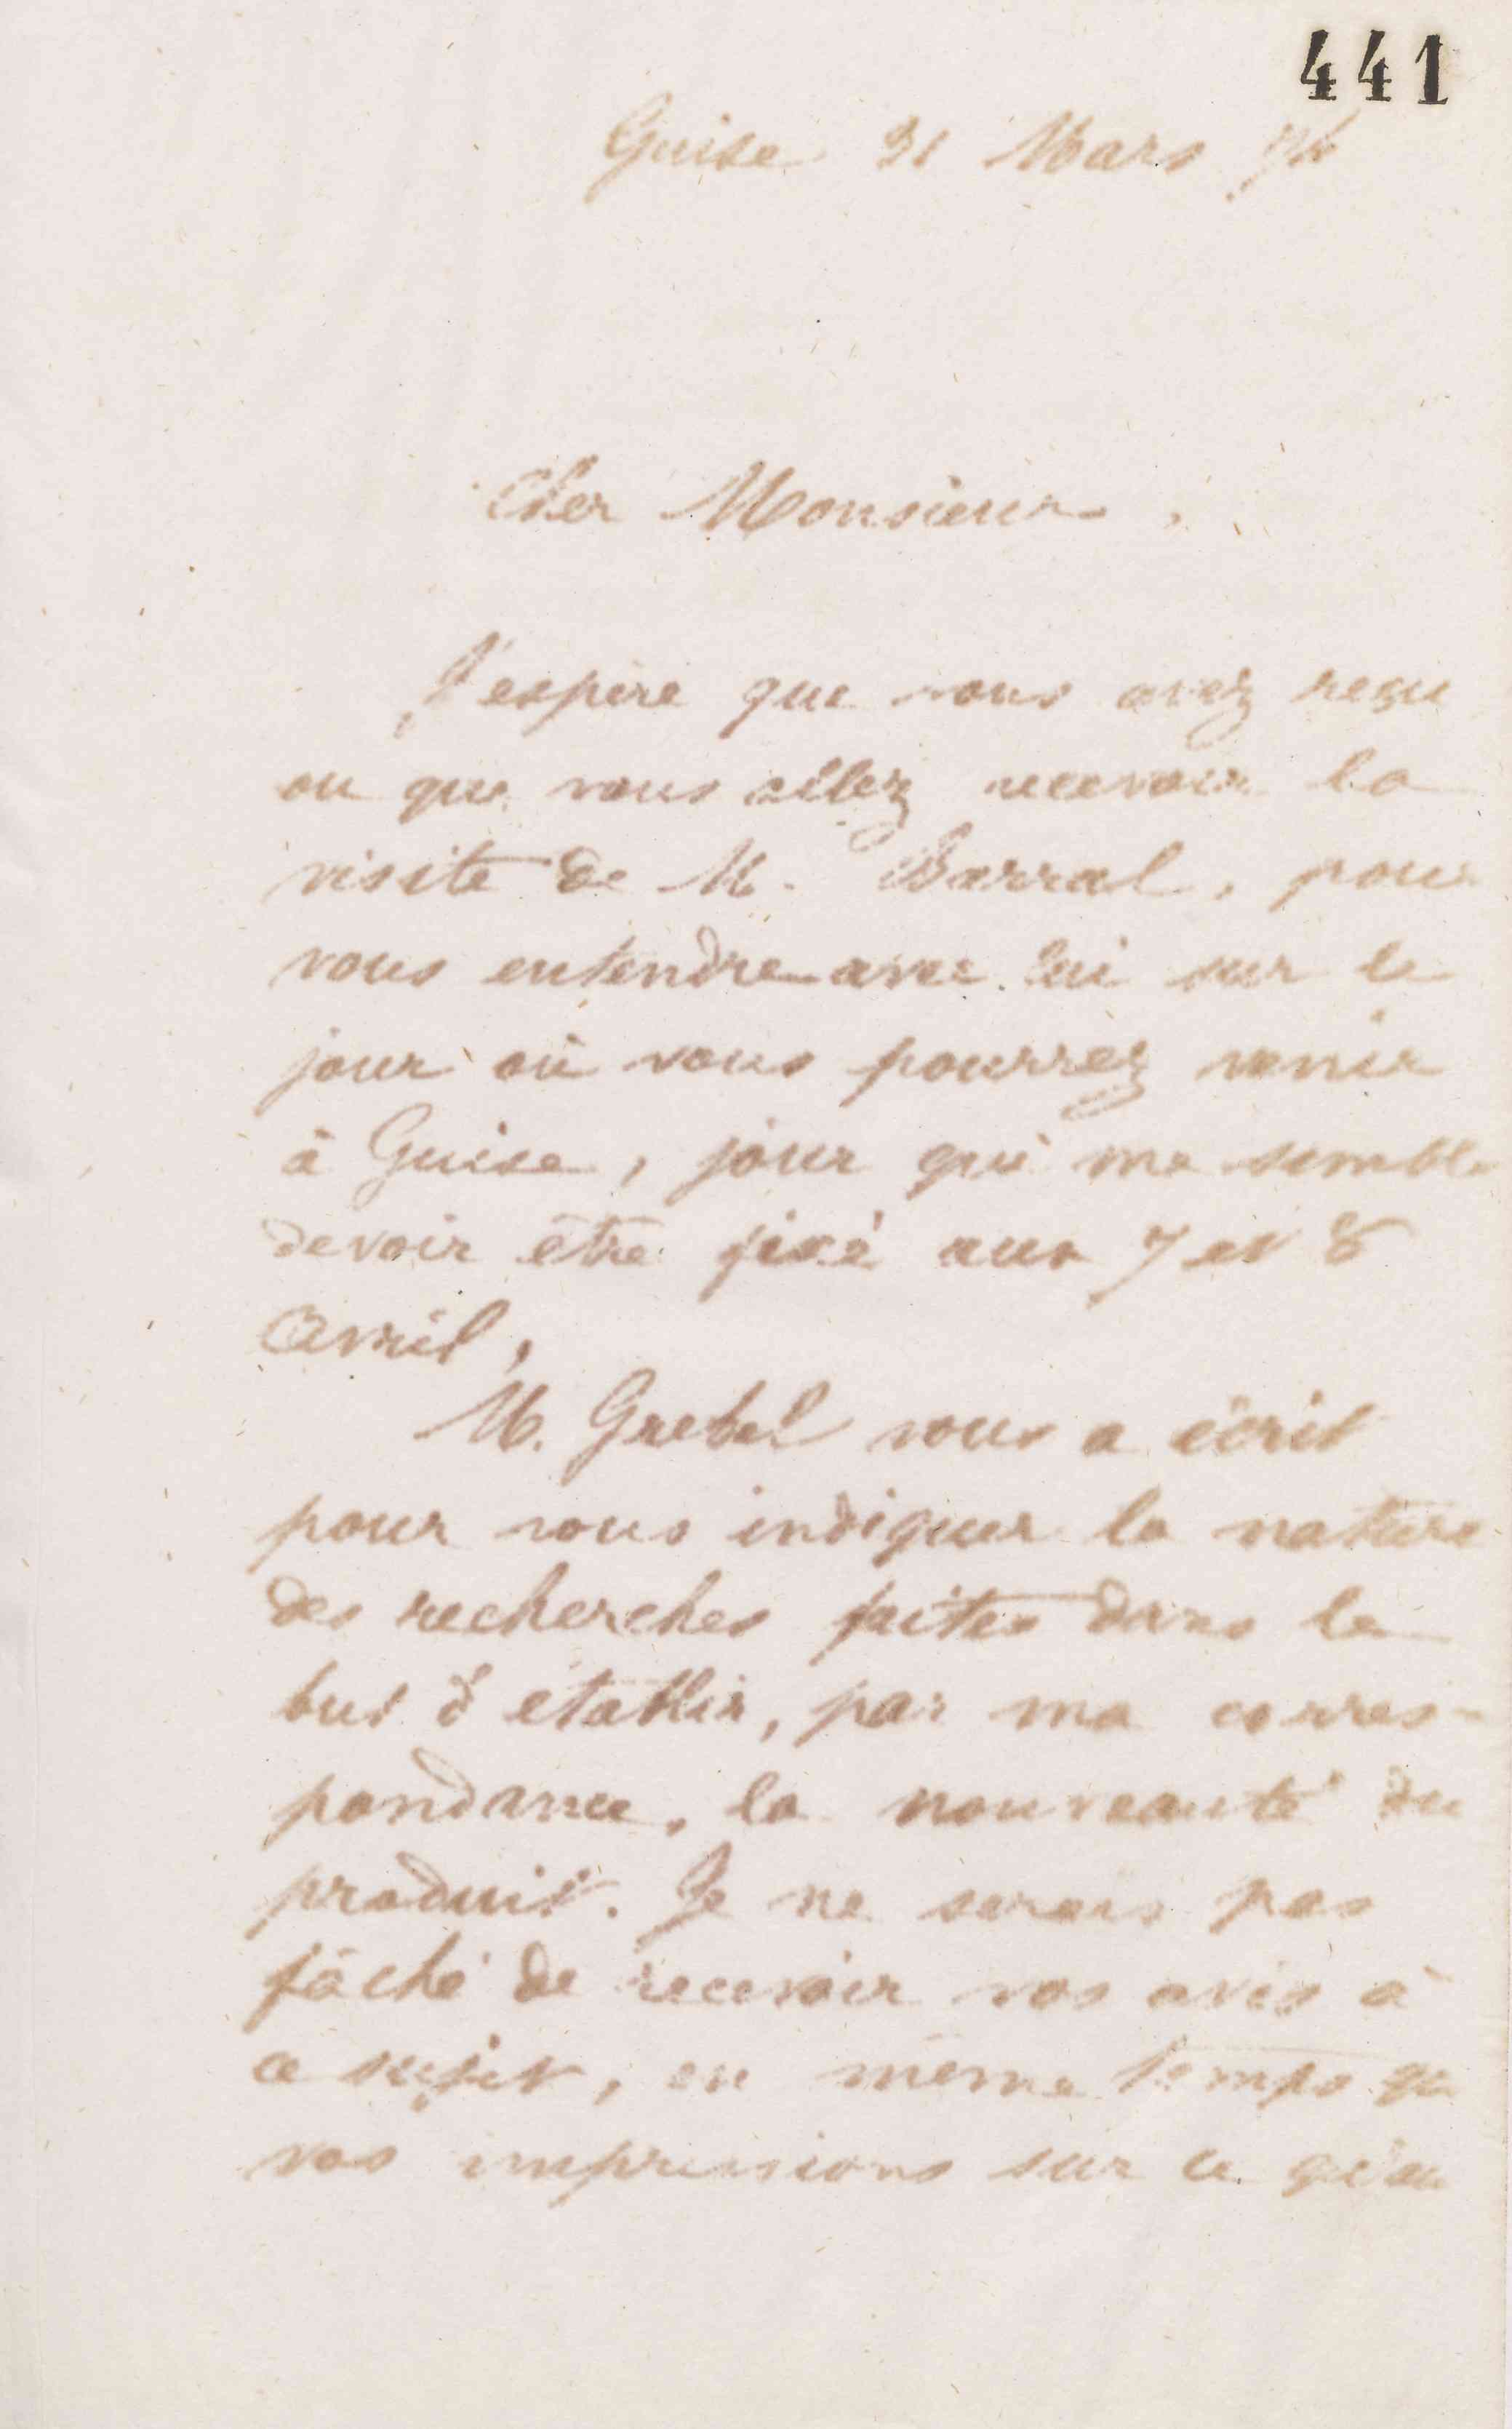 441
Guise 31 Mars 74
Cher Monsieur,
J'espère que vous avez reçu
ou que vous allez recevoir la
visite de M. Barral, pour
vous entendre avec lui sur le
jour où vous pourrez venir
à Guise, jour qui me semble
devoir être fixé aux 7 et 8
Avril,
M. Grebel vous a écrit
pour vous indiquer la nature
des recherches faites dans le
but d'établir, par ma corres-
pondance, la nouveauté du
produit. Je ne serais pas
fâché de recevoir vos avis à
ce sujet, en même temps que
vos impressions sur ce qu'au